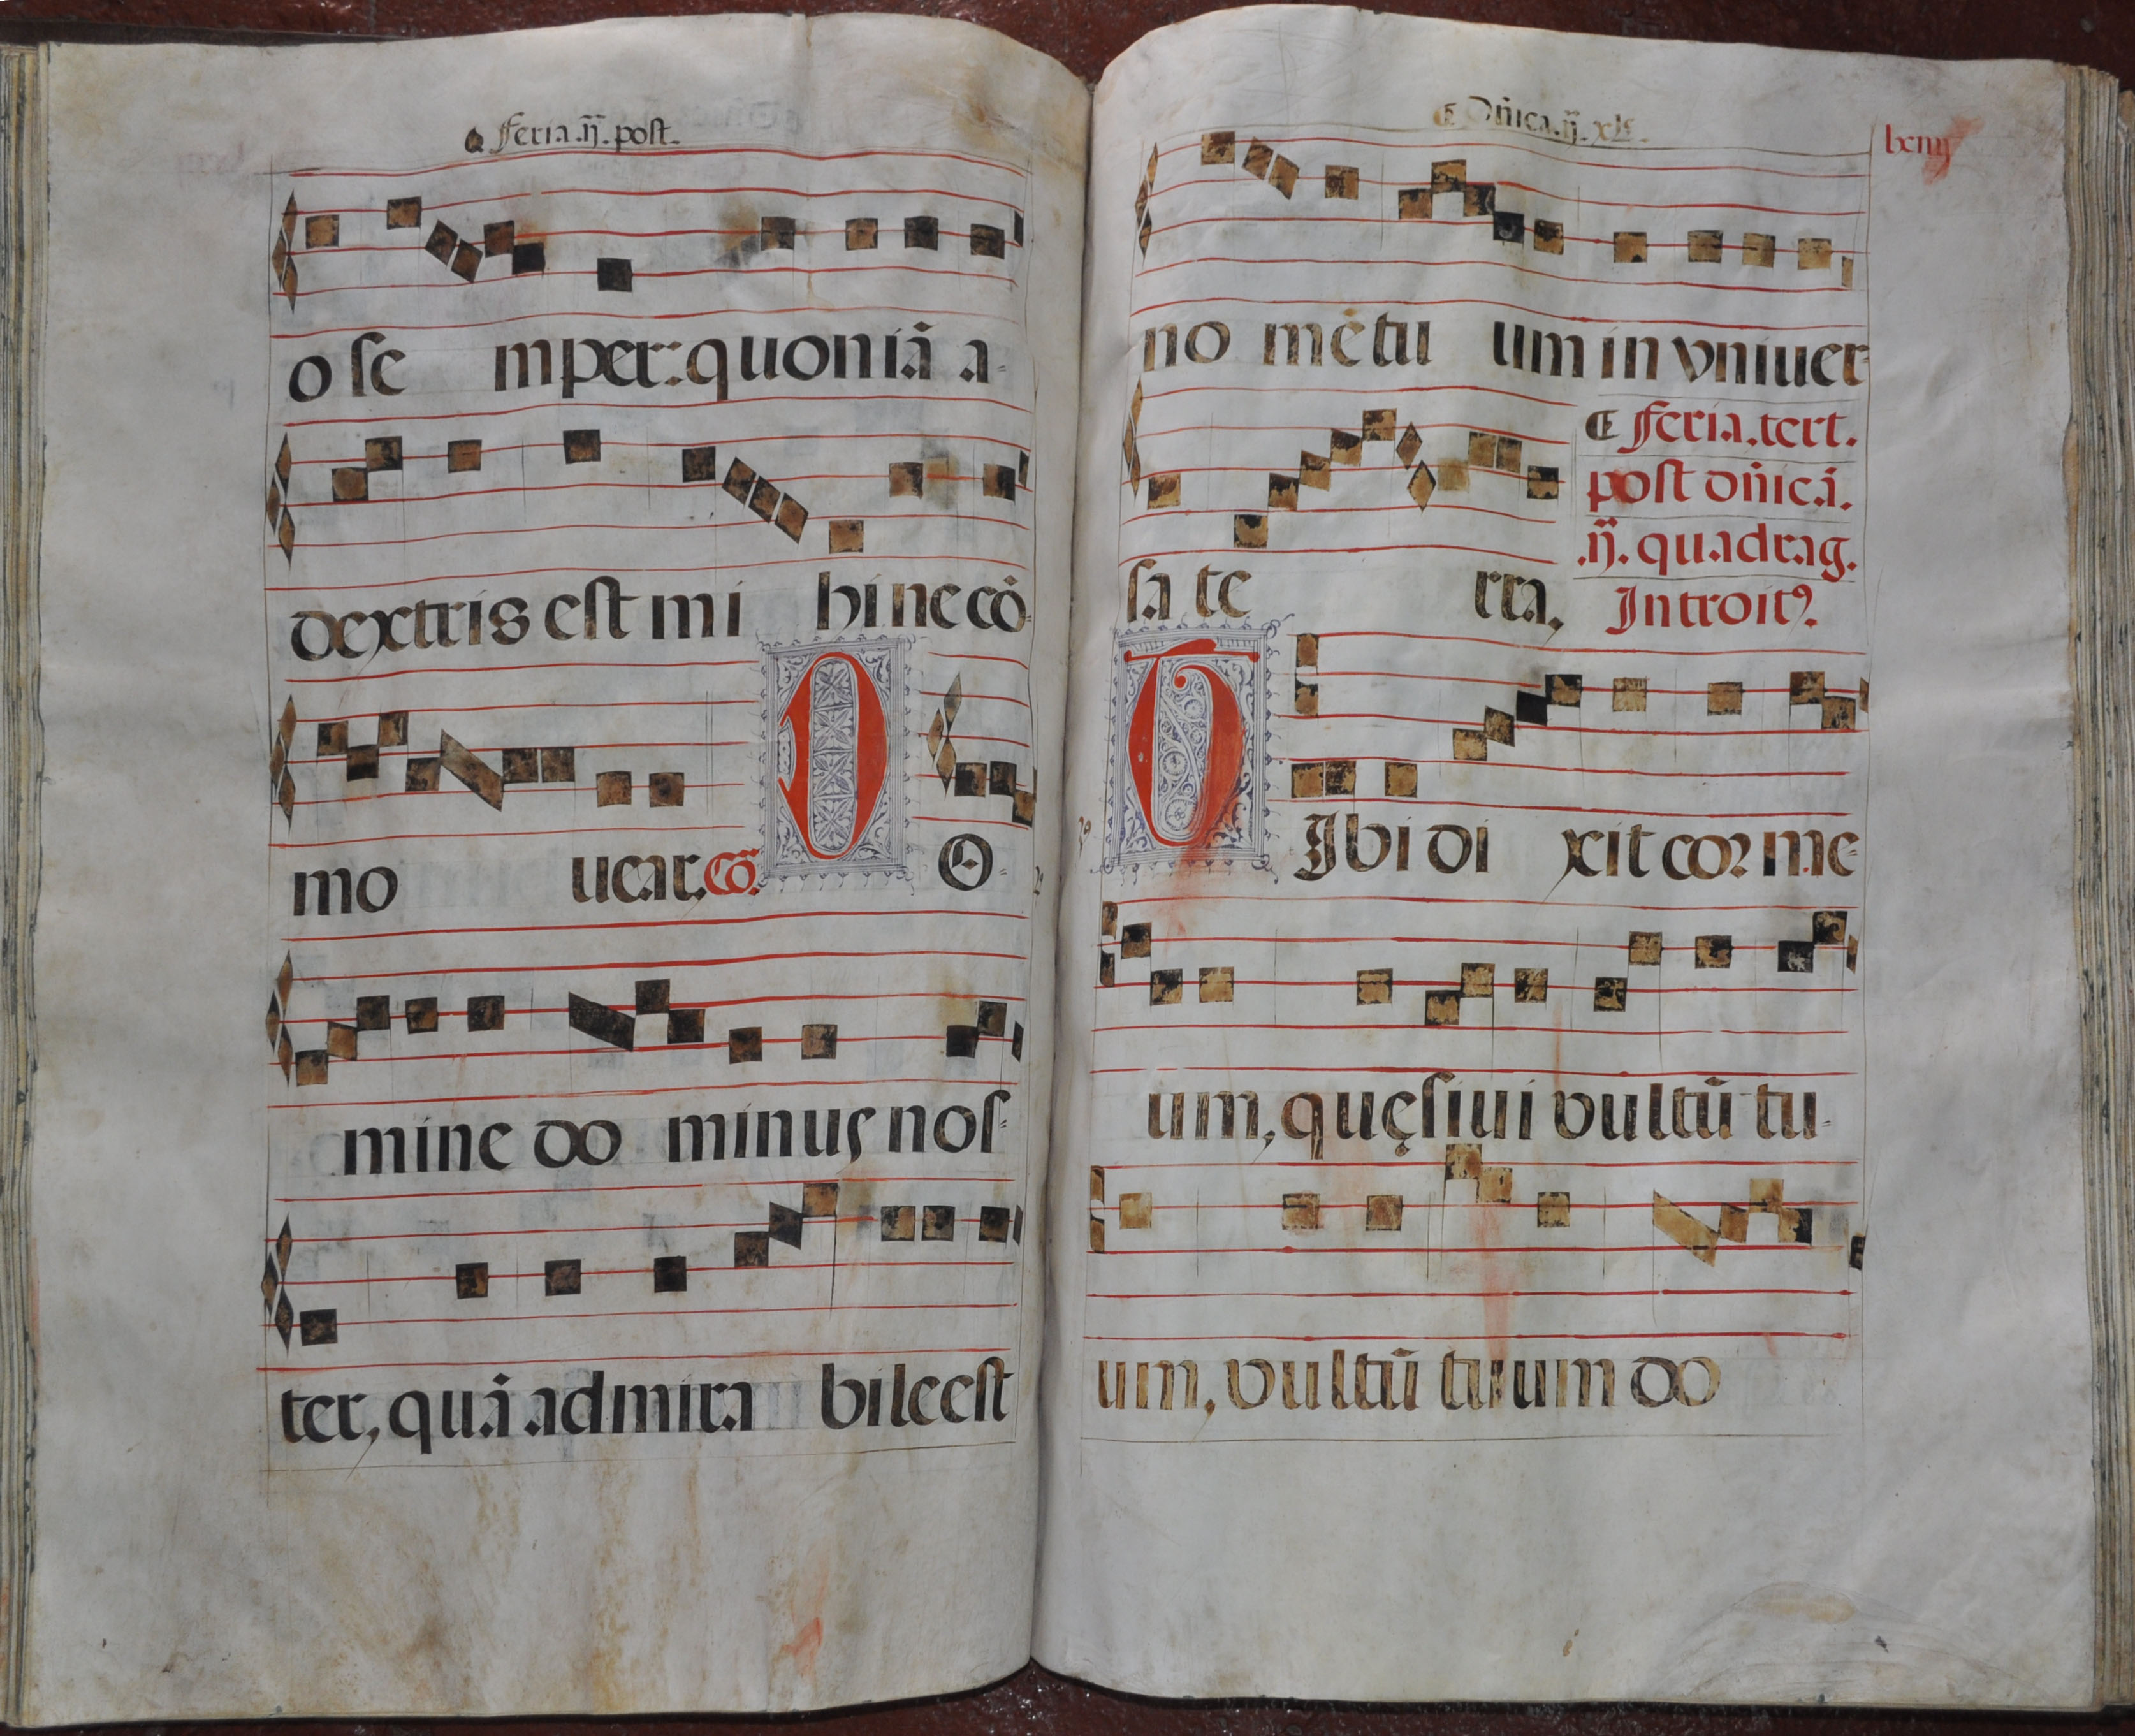 feria .ij. post.
o se mper: quoniã a-
dextris est mi hi ne cõ-
mo uear. Cõ. D O-
mine do minus nos-
ter, quã admira bile est
Dñica .ij. xl
lxiiij
no mẽ tu um in vniuer-
sa te rra,
feria. tert.
post dñicã.
.ij. quadrag.
Introitꝰ.
T Ibi di xit cor me-
um, quęsiui vultũ tu-
um, vultũ tuum do